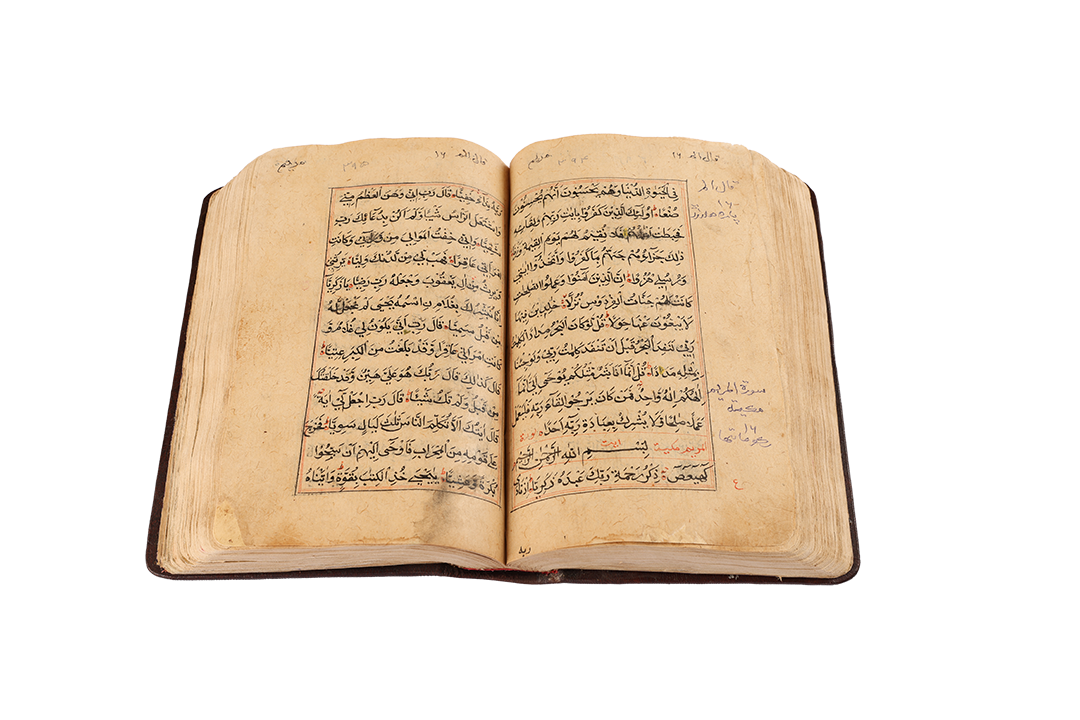 قال الم ١٦
مريم
في الحيوة الدنيا وهم يحسبون انهم يحسنون
صنعا اولئك الذين كفروا بايت ربهم ولقائه
فحبطت اعمالهم فلا نقيم لهم يوم القيمة وزنا
ذلك جزاؤهم جهنم بما كفروا واتخذوا ايتي
ورسلي هزوا ان الذين امنوا وعملوا الصلحت
كانت لهم جنات الفردوس نزلا خلدين فيها
لا يبغون عنها حولا قل لو كان البحر مدادا لكلمت
ربي لنفد البحر قبل ان تنفد كلمت ربي ولو جئنا
بمثله مددا قل انما انا بشر مثلكم يوحى الي انما
الهكم اله واحد فمن كان يرجوا لقاء ربه فليعمل
عملا صالحا ولا يشرك بعبادة ربه احدا سورة
المريم مكية بسم الله الرحمن الرحيم
كهيعص ذكر رحمة ربك عبده زكريا اذ نادى
ربه
قال الم
١٦
سورة المريم
مكية
١٦
ركوعاتها
٤
قال الم ١٦
مريم
ربه نداء خفيا قال رب اني وهن العظم مني
واشتعل الراس شيبا ولم اكن بدعائك رب
شقيا واني خفت الموالي من وراءي وكانت
امراتي عاقرا فهب لي من لدنك وليا يرثني
ويرث من ال يعقوب وجعله رب رضيا يا زكريا
انا نبشرك بغلام ن اسمه يحيى لم نجعل له
من قبل سميا قال رب انى يكون لي غلام و
كانت امراتي عاقرا وقد بلغت من الكبر عتيا
قال كذلك قال ربك هو علي هين وقد خلقتك
من قبل ولم تك شيئا قال رب اجعل لي اية
قال ايتك الا تكلم الناس ثلث ليال سويا فخرج
على قومه من المحراب فاوحى اليهم ان سبحوا
بكرة وعشيا ييحيى خذ الكتب بقوة واتيناه